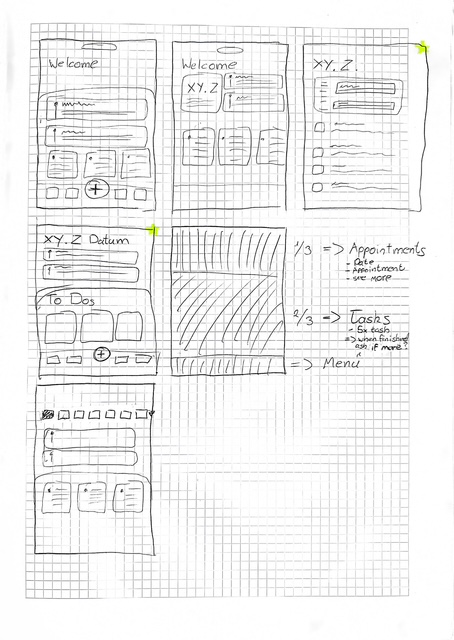 Welcome
Welcome
XY.Z
XY.Z.
XY.Z Datum
To Dos
1/3 => Appointments
- Date
- Appointment
- see more
2/3 => Tasks
- 5x task
=> when finished
ask if more?
=> Menu